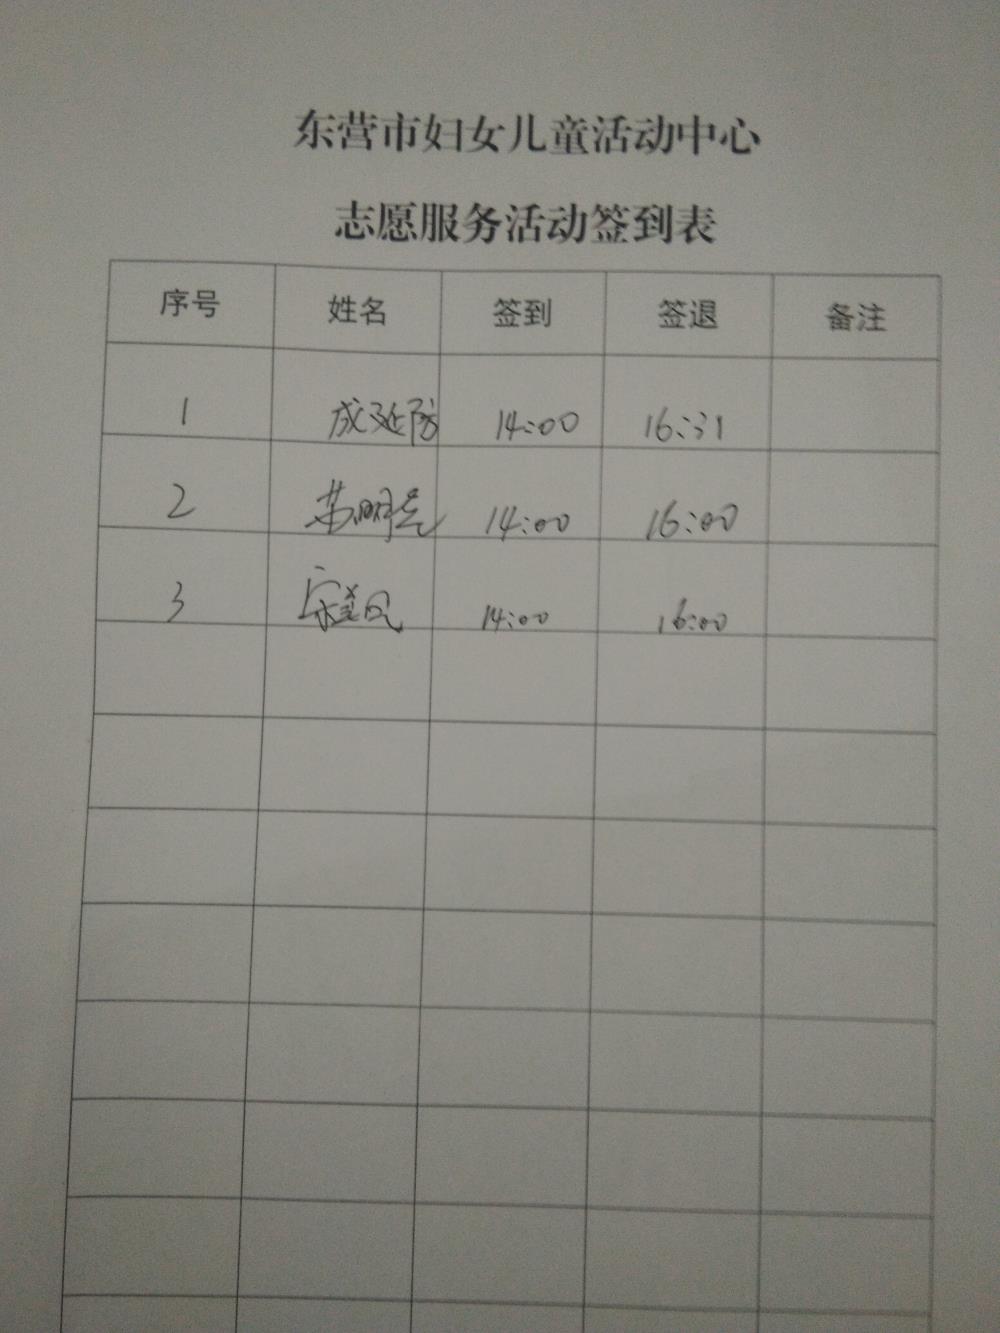 东营市妇女儿童活动中心
志愿服务活动签到表
序号 姓名 签到 签退 备注
1 成延防 14:00 16:31
2 苏明亮 14:00 16:00
3 14:00 16:00